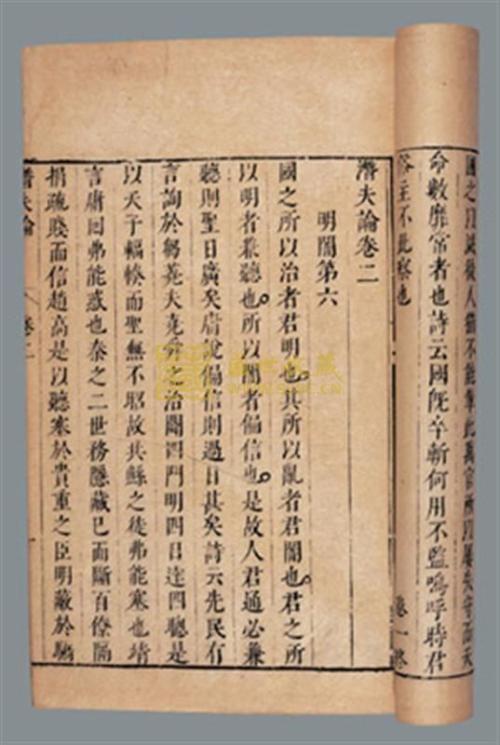 國之以滅後人猶不能革此萬官所以屢失守而天
命數靡常者也詩云國旣卒斬何用不監嗚呼時君
俗主不此察也
卷一終
濳夫論卷二
明闇第六
國之所以治者君明也其所以亂者君闇也君之所
以明者兼聽也所以闇者偏信也是故人君通必兼
聽則聖日廣矣庸說偏信則過日甚矣詩云先民有
言詢於芻蕘夫堯舜之治闢四門明四目達四聰是
以天子輻湊而聖無不昭故共鯀之徒弗能塞也靖
言庸回弗能惑也秦之二世務隱藏已而斷百僚隔
捐疏賤而信趙高是以聽塞於貴重之臣明蔽於驕
濳夫論
卷二